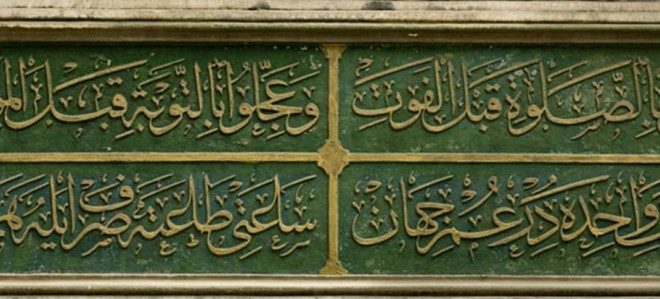 بالصلوة قبل الفوت وعجلوا بالتوبة قبل
واحده در عمر جهان ساعتی طاعته صرف ایله